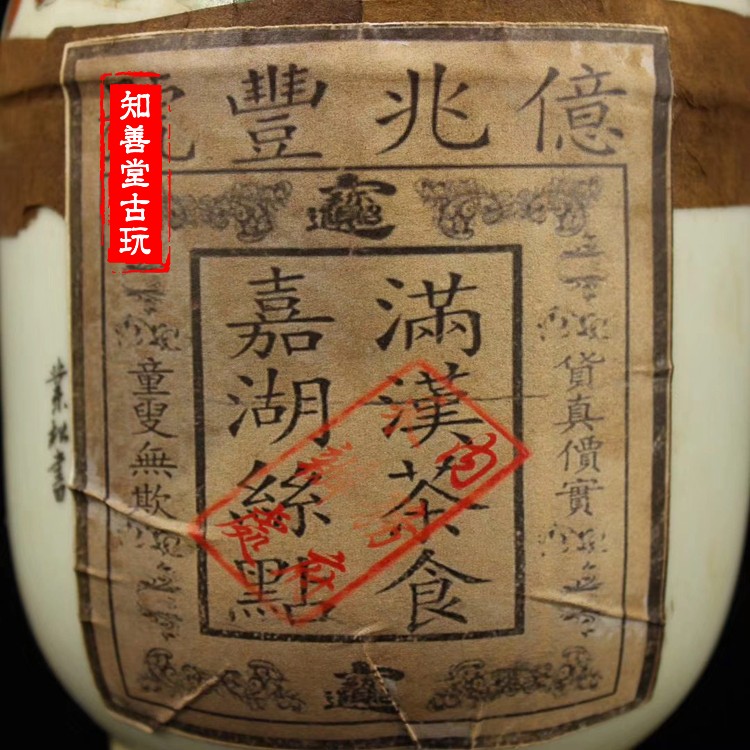 億兆豐號
貨真價實
滿漢茶食
嘉湖絲點
童叟無欺
知善堂古玩